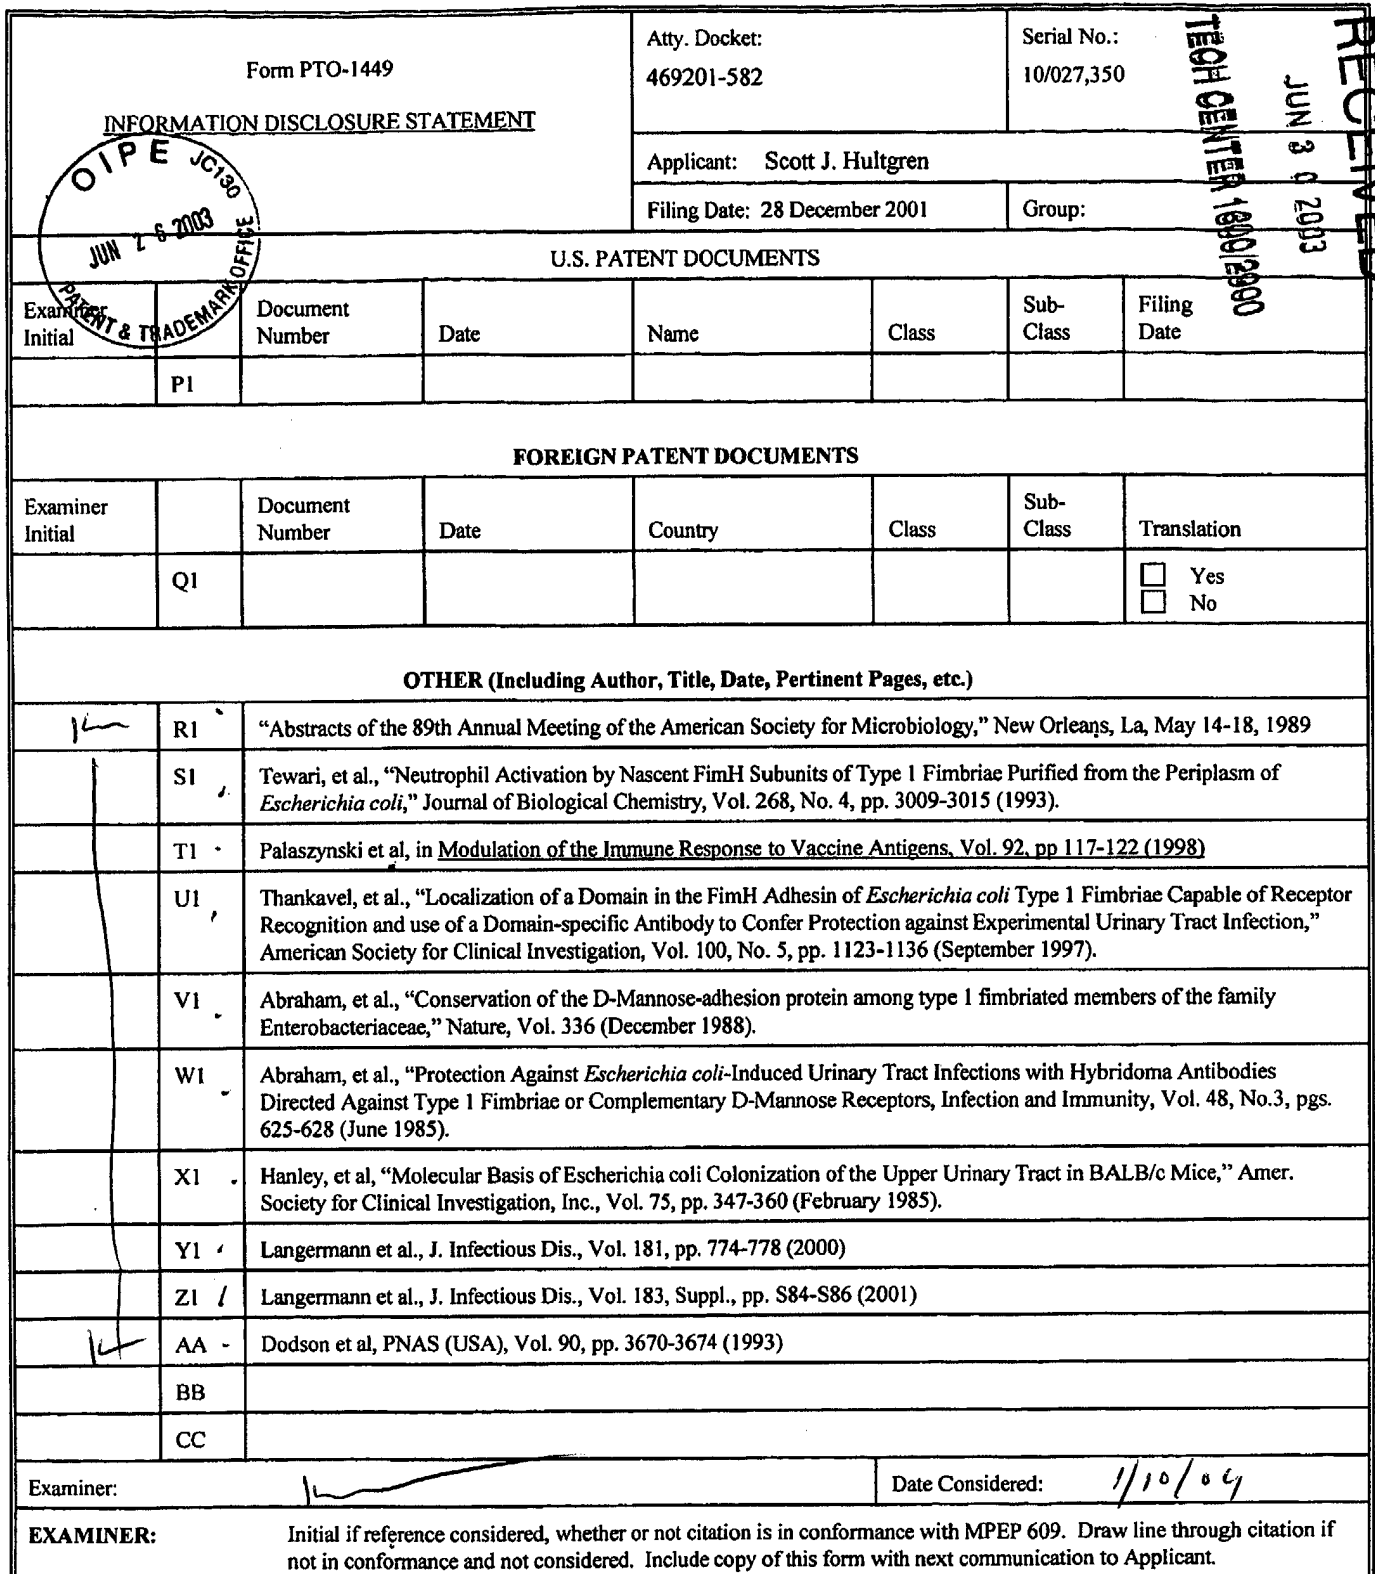 Form PTO-1449
INFORMATION DISCLOSURE STATEMENT
Atty. Docket:
469201-582
Serial No.:
10/027,350
Applicant: Scott J. Hultgren
Filing Date: 28 December 2001
Group:
RECEIVED
JUN 30 2003
TECH CENTER 1600/2900
OIPE JC130
JUN 26 2003
PATENT & TRADEMARK OFFICE
U.S. PATENT DOCUMENTS
Examiner
Initial
Document
Number
Date
Name
Class
Sub-
Class
Filing
Date
P1
FOREIGN PATENT DOCUMENTS
Examiner
Initial
Document
Number
Date
Country
Class
Sub-
Class
Translation
Q1
Yes
No
OTHER (Including Author, Title, Date, Pertinent Pages, etc.)
R1 "Abstracts of the 89th Annual Meeting of the American Society for Microbiology," New Orleans, La, May 14-18, 1989
S1 Tewari, et al., "Neutrophil Activation by Nascent FimH Subunits of Type 1 Fimbriae Purified from the Periplasm of
Escherichia coli," Journal of Biological Chemistry, Vol. 268, No. 4, pp. 3009-3015 (1993).
T1 Palaszynski et al, in Modulation of the Immune Response to Vaccine Antigens, Vol. 92, pp 117-122 (1998)
U1 Thankavel, et al., "Localization of a Domain in the FimH Adhesin of Escherichia coli Type 1 Fimbriae Capable of Receptor
Recognition and use of a Domain-specific Antibody to Confer Protection against Experimental Urinary Tract Infection,"
American Society for Clinical Investigation, Vol. 100, No. 5, pp. 1123-1136 (September 1997).
V1 Abraham, et al., "Conservation of the D-Mannose-adhesion protein among type 1 fimbriated members of the family
Enterobacteriaceae," Nature, Vol. 336 (December 1988).
W1 Abraham, et al., "Protection Against Escherichia coli-Induced Urinary Tract Infections with Hybridoma Antibodies
Directed Against Type 1 Fimbriae or Complementary D-Mannose Receptors, Infection and Immunity, Vol. 48, No.3, pgs.
625-628 (June 1985).
X1 Hanley, et al, "Molecular Basis of Escherichia coli Colonization of the Upper Urinary Tract in BALB/c Mice," Amer.
Society for Clinical Investigation, Inc., Vol. 75, pp. 347-360 (February 1985).
Y1 Langermann et al., J. Infectious Dis., Vol. 181, pp. 774-778 (2000)
Z1 Langermann et al., J. Infectious Dis., Vol. 183, Suppl., pp. S84-S86 (2001)
AA Dodson et al, PNAS (USA), Vol. 90, pp. 3670-3674 (1993)
BB
CC
Examiner:
Date Considered: 1/10/04
EXAMINER: Initial if reference considered, whether or not citation is in conformance with MPEP 609. Draw line through citation if
not in conformance and not considered. Include copy of this form with next communication to Applicant.